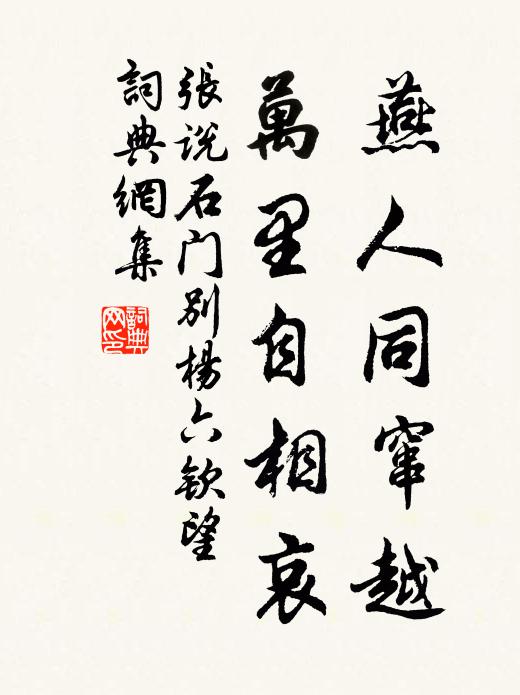 燕人同竄越
萬里自相哀
張說石门别楊六欽望
詞典網集
詞典
网印